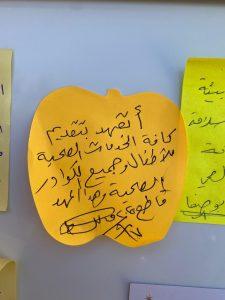 أتعهد بتقديم
كافة الخدمات الصحية
للأطفال وجميع الكوادر
الصحية وهذا العهد
بيئية
سلامة